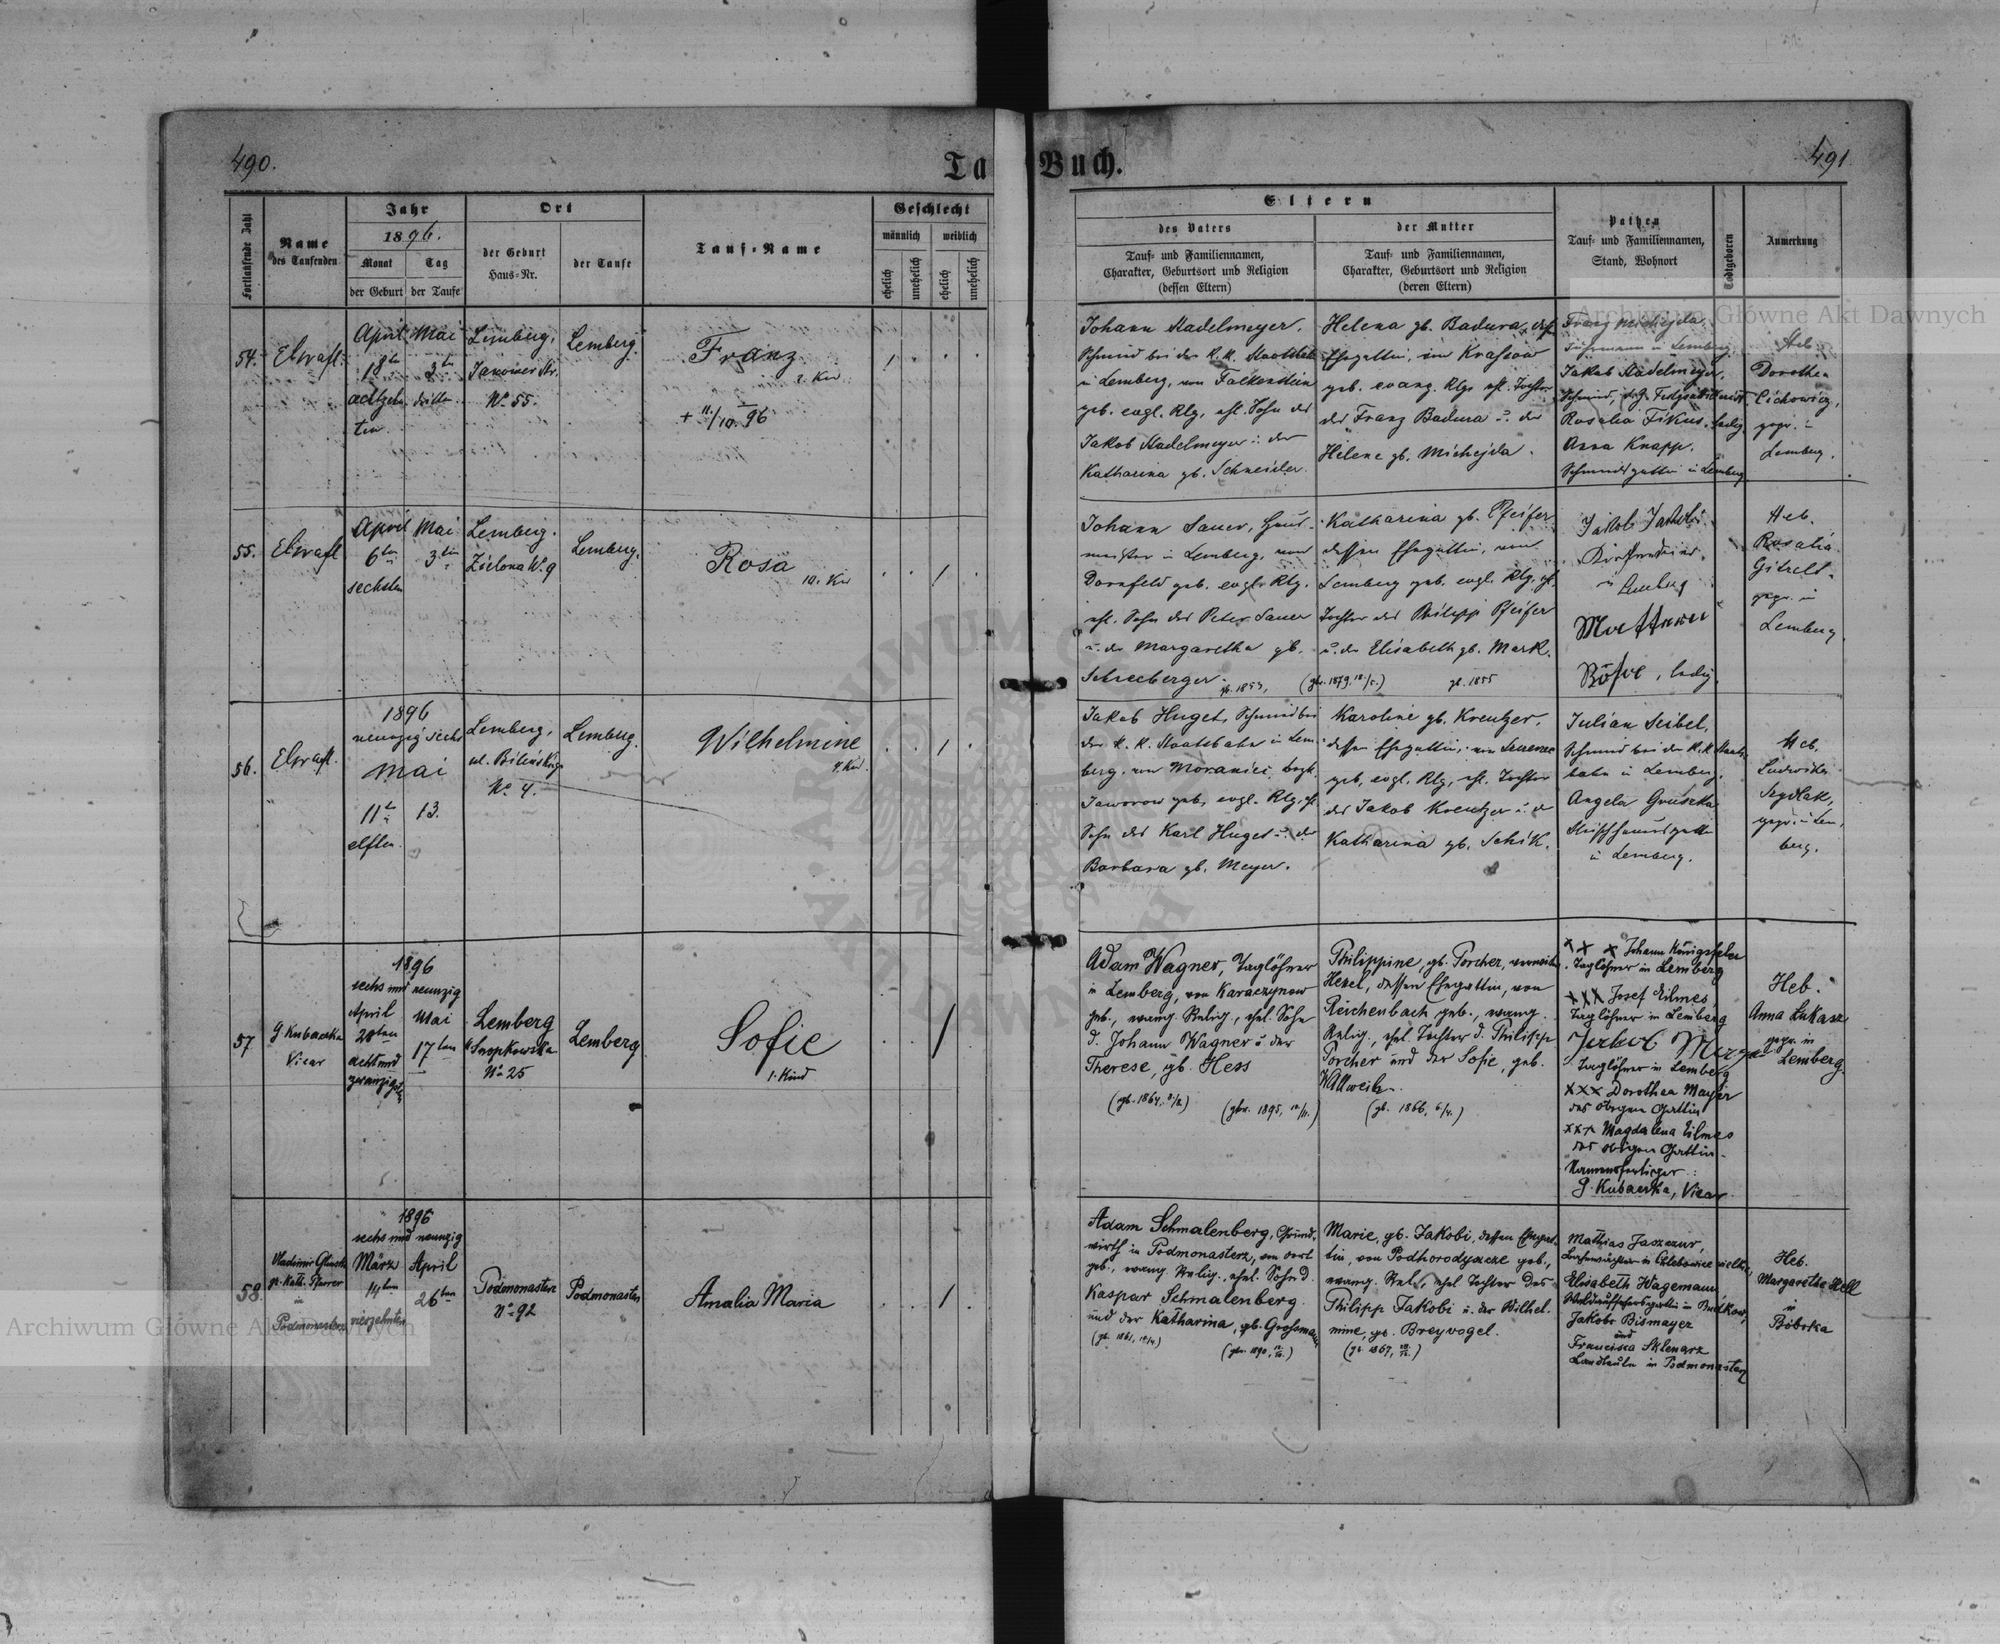 490.
Tauf-Buch.
491
Fortlaufende Zahl
Name
des Taufenden
Jahr
1896.
Monat
Tag
der Geburt
der Taufe
Ort
der Geburt
Haus-Nr.
der Taufe
Tauf-Name
Geschlecht
männlich
weiblich
ehelich
unehelich
ehelich
unehelich
Eltern
des Vaters
Tauf- und Familiennamen,
Charakter, Geburtsort und Religion
(dessen Eltern)
der Mutter
Tauf- und Familiennamen,
Charakter, Geburtsort und Religion
(deren Eltern)
Pathen
Tauf- und Familiennamen,
Stand, Wohnort
Todtgeboren
Anmerkung
54.
April
18ten
achtzehn
ten
Mai
3ten
dritten
Lemberg,
Janower Str.
No 55.
Lemberg.
Franz
2. Kind
+ 11./10. 96
Johann Stadelmeyer,
Schmied bei der K. K. Staatsbahn
in Lemberg, von Falkenstein
geb. evgl. Rlg. ehl. Sohn des
Jakob Stadelmeyer u. der
Katharina gb. Schneider.
Helena gb. Badura, dess.
Ehegattin, von
geb. evang. Rlg. ehl. Tochter
des Franz Badura u. der
Helene gb. Michejda.
Franz Michejda
in Lemberg
Jakob Stadelmeyer,
Schmied,
Rosalia Fikus, ledig,
Anna Knapp,
Schmiedsgattin in Lemberg
Heb.
Dorothea
Cichowicz,
gepr. in
Lemberg.
55.
April
6ten
sechsten
Mai
3ten
Lemberg.
Zielona No 9
Lemberg.
Rosa
10. Kind
Johann Sauer, Haus-
meister in Lemberg, von
Dornfeld geb. evgl. Rlg.
ehl. Sohn des Peter Sauer
u. der Margaretha gb.
Schneeberger.
gb. 1853,
Katharina gb. Pfeifer
dessen Ehegattin, von
Lemberg geb. evgl. Rlg. ehl.
Tochter des Philipp Pfeifer
u. der Elisabeth gb. Mark.
(gtr. 1879. 18/5.)
gb. 1855
Jakob
in Lemberg
ledig.
Heb.
Rosalia
gepr. in
Lemberg.
56.
1896
neunzig sechs
Mai
11te
elften
13.
Lemberg,
ul. Bilinskiego
No 4.
Lemberg.
Wilhelmine
4. Kind.
Jakob Huget, Schmied bei
der K. K. Staatsbahn in Lem-
berg, von Moraniec, bzgk.
Jaworow geb. evgl. Rlg. ehl.
Sohn des Karl Huget u. der
Barbara gb. Meyer.
Karoline gb. Kreutzer,
dessen Ehegattin, von
geb. evgl. Rlg. ehl. Tochter
des Jakob Kreutzer u. d.
Katharina gb. Schik.
Julian Seibel,
Schmied bei der K.K. Staats-
bahn in Lemberg.
Angela Gruszka
in Lemberg.
Heb.
Ludwika
Szydlak,
gepr. in Lem-
berg.
57
G Kubaczka
Vicar
1896
sechs und neunzig
April
28ten
acht und
zwanzigsten
Mai
17ten
Lemberg
Snopkowska
No 25
Lemberg
Sofie
1. Kind
Adam Wagner, Taglöhner
in Lemberg, von Karaczynow
geb., evang. Relig., ehel. Sohn
d. Johann Wagner u. der
Therese, gb. Hess
(gb. 1864, 8/2.)
(gtr. 1895, 10/11.)
Philippine, gb. Porcher, verwitwete
Hekel, dessen Ehegattin, von
Reichenbach geb., evang.
Relig., ehel. Tochter d. Philipp
Porcher und der Sofie, geb.
Wallweih.
(gb. 1866, 6/4.)
xxx Johann Königsfeler
Taglöhner in Lemberg
xxx Josef Eilmes,
Taglöhner in Lemberg
Jakob Mayer
Taglöhner in Lemberg
xxx Dorothea Mayer
des obigen Gattin
xxx Magdalena Eilmes
des obigen Gattin-
Namensfertiger:
G. Kubaczka, Vicar.
Heb.
Anna Lukasz
gepr. in
Lemberg.
58.
gr. kath. Pfarrer
in
Podmonasterz
1896
sechs und neunzig
März
14ten
vierzehnten
April
26ten
Podmonasterz
No 92
Podmonaster
Amalia Maria
Adam Schmalenberg, Grund-
wirth in Podmonasterz, von dort
geb., evang. Relig., ehel. Sohn d.
Kaspar Schmalenberg
und der Katharina, gb. Grossmann
Marie, gb. Jakobi, dessen Ehegat-
tin, von Podhorodyszcze geb.,
evang. Rel., ehel. Tochter des
Philipp Jakobi u. der Wilhel-
mine, gb. Breyvogel.
Mathias Jaszczur,
in Chlebowice wielkie,
Elisabeth Wagemann
Jakobr Bismayer
und
Franciska Sklenarz
Landleute in Podmonasterz
Heb.
Margaretha Hell
in
Bóbrka
Archiwum Główne Akt Dawnych
Archiwum Główne Akt Dawnych